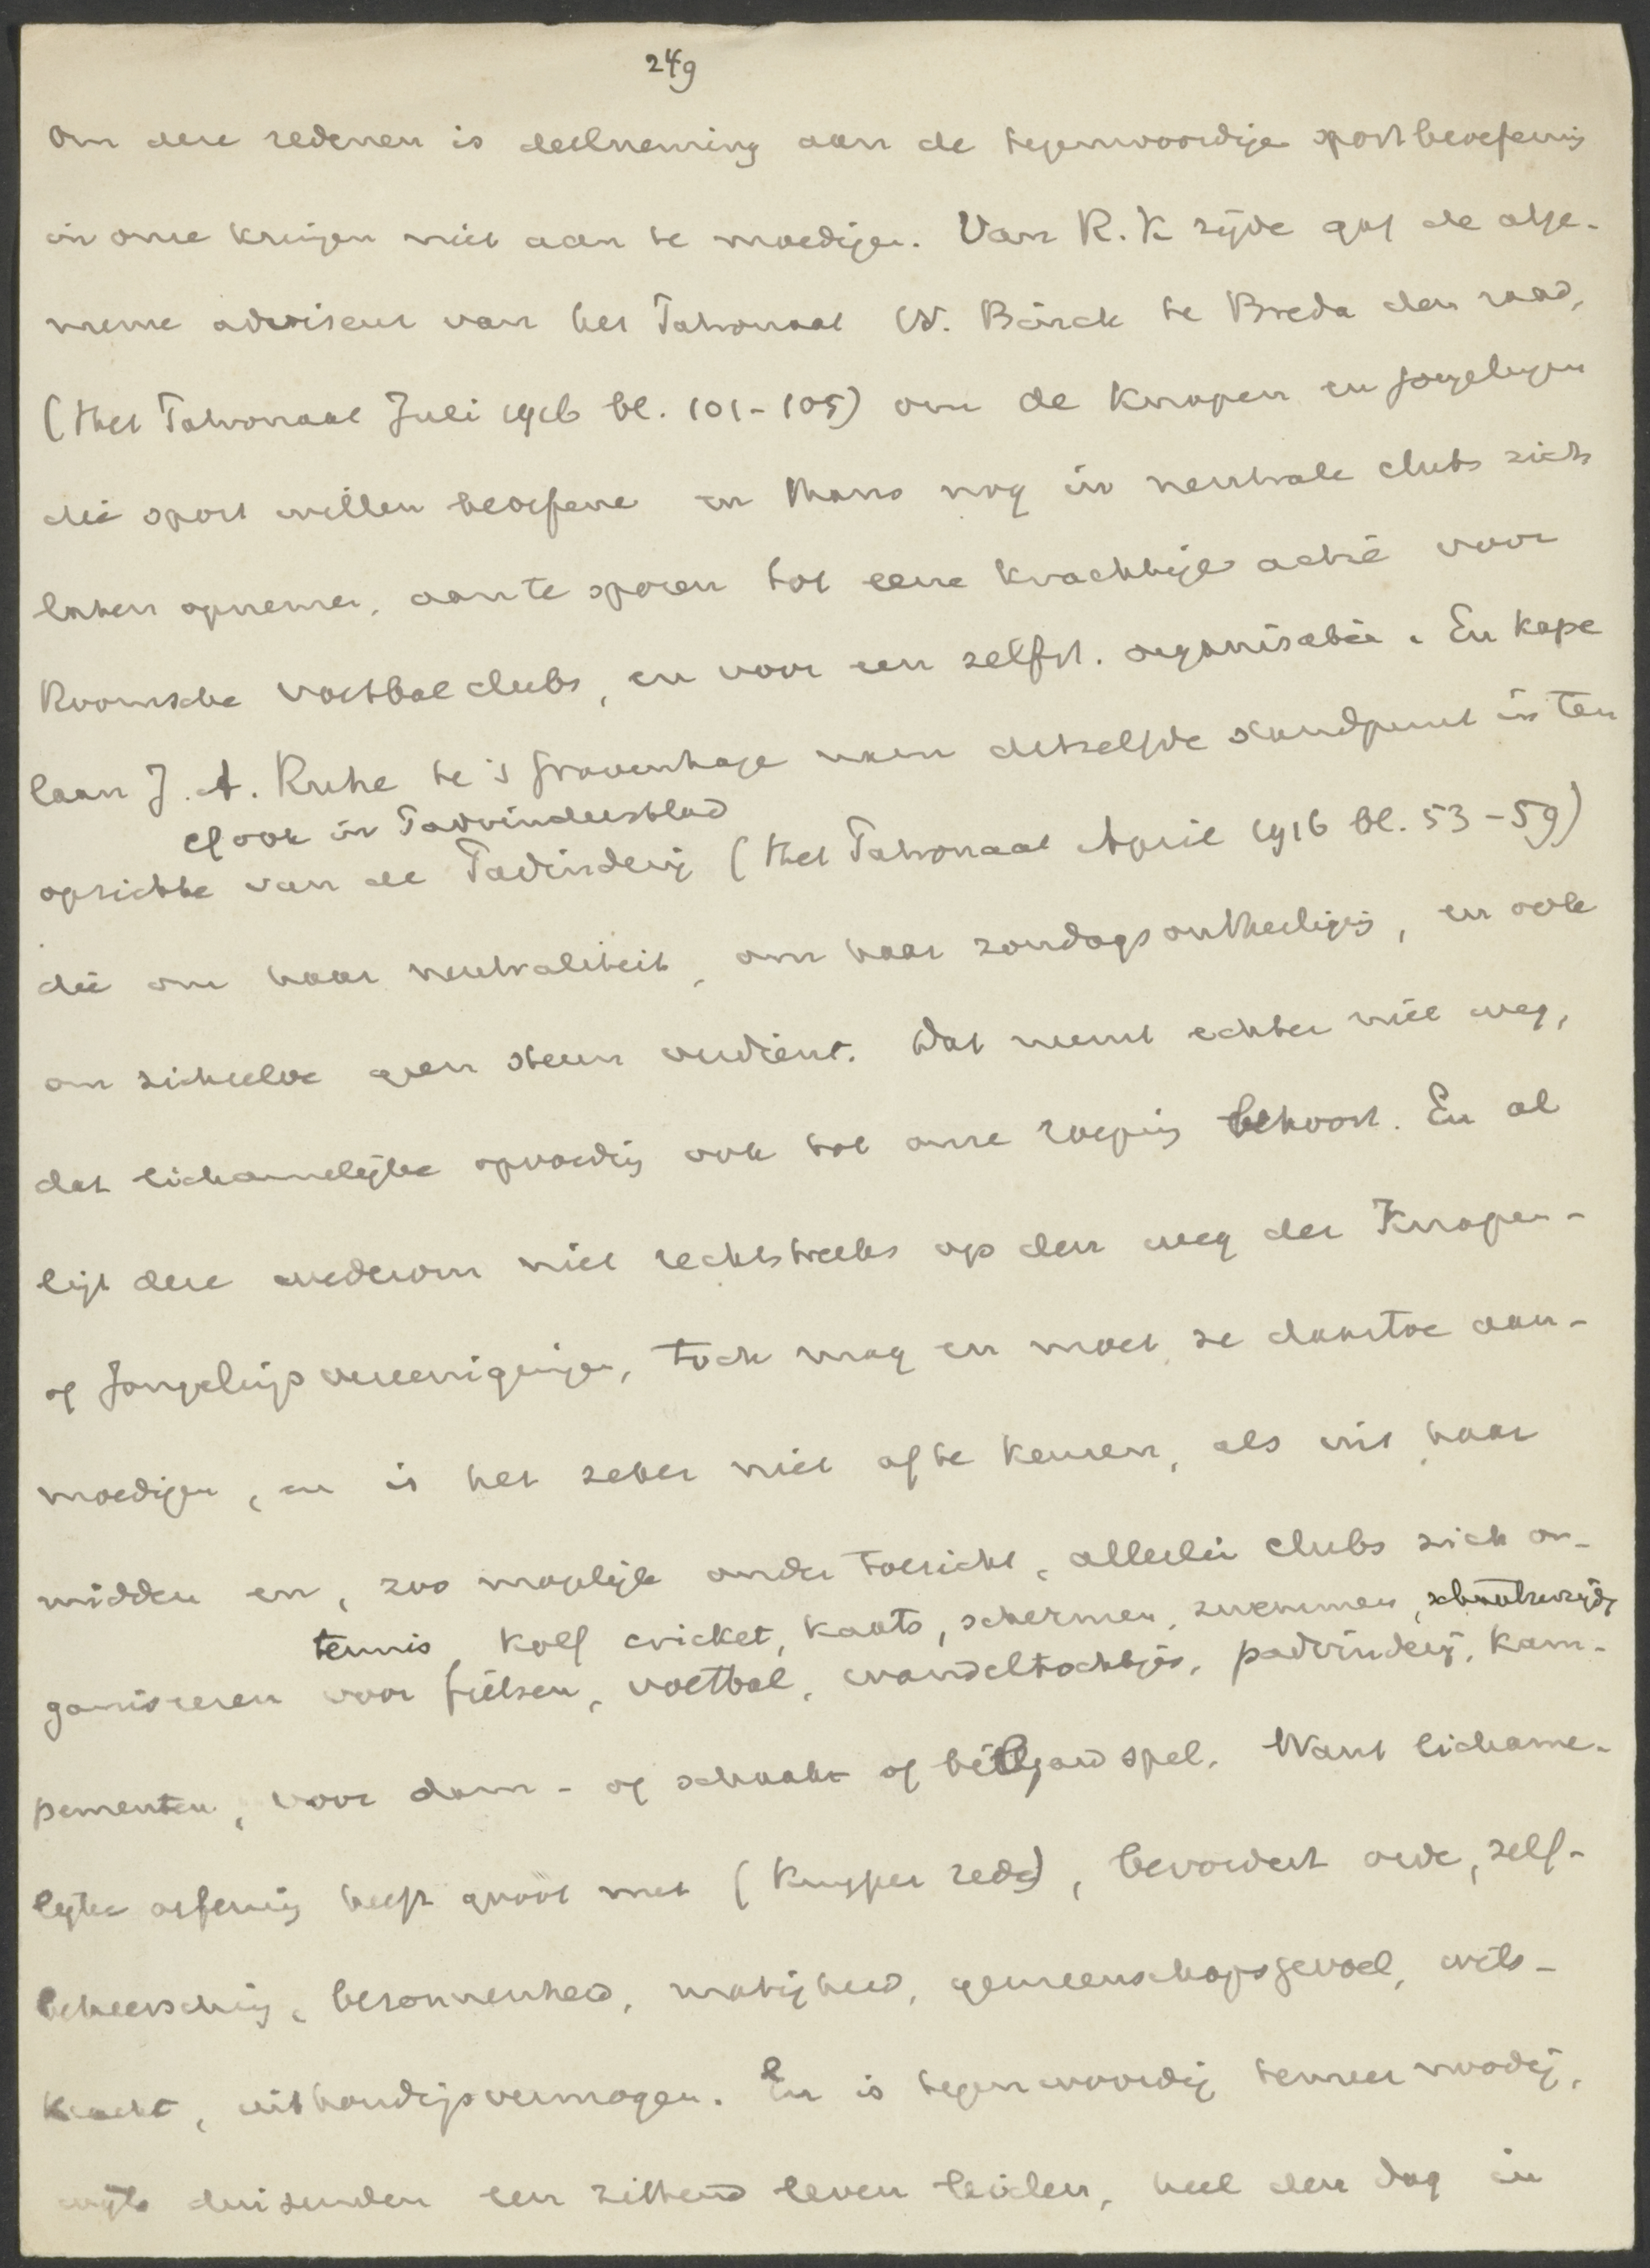 249
Om deze redenen is deelneming aan de tegenwoordige sportbeoefening
in onze kringen niet aan te moedigen. Van R.K zijde gaf de alge-
meene adviseur van het Patronaat W. Bärck te Breda den raad,
(Het Patronaat Juli 1916 bl. 101-105) om de knapen en jongelingen
die sport willen beoefenen en thans nog in neutrale clubs zich
laten opnemen, aan te sporen tot eene krachtige actie voor
Roomsche voetbalclubs, en voor een zelfst. organisatie. En kape
laan J. A. Ruhe te 's Gravenhage nam hetzelfde standpunt in ten
cf ook in Padvindersblad
opzichte van de Padvinderij (Het Patronaat April 1916 bl. 53-59)
die om haar neutraliteit, om haar zondagsontheiliging, en ook
om zichzelve geen steun verdient. Dat neemt echter niet weg,
dat lichamelijke opvoeding ook tot onze roeping behoort. En al
ligt deze wederom niet rechtstreeks op den weg der Knapen-
of Jongelingsvereenigingen, toch mag en moet ze daartoe aan-
moedigen, en is het zeker niet af te keuren, als uit haar
midden en, zoo mogelijk onder toezicht, allerlei clubs zich or-
tennis, kolf cricket, kaats, schermen, zwemmen, schaatsenrijden
ganiseeren voor fietsen, voetbal, wandeltochtjes, padvinderij, kam-
pementen, voor dam- of schaak- of biljard spel. Want lichame-
lijke oefening heeft groot nut (Kuyper rede), bevordert orde, zelf-
beheersching, bezonnenheid, matigheid, gemeenschapsgevoel, wils-
kracht, uithoudingsvermogen. En is tegenwoordig temeer noodig,
wijl duizenden een zittend leven leiden, heel den dag in